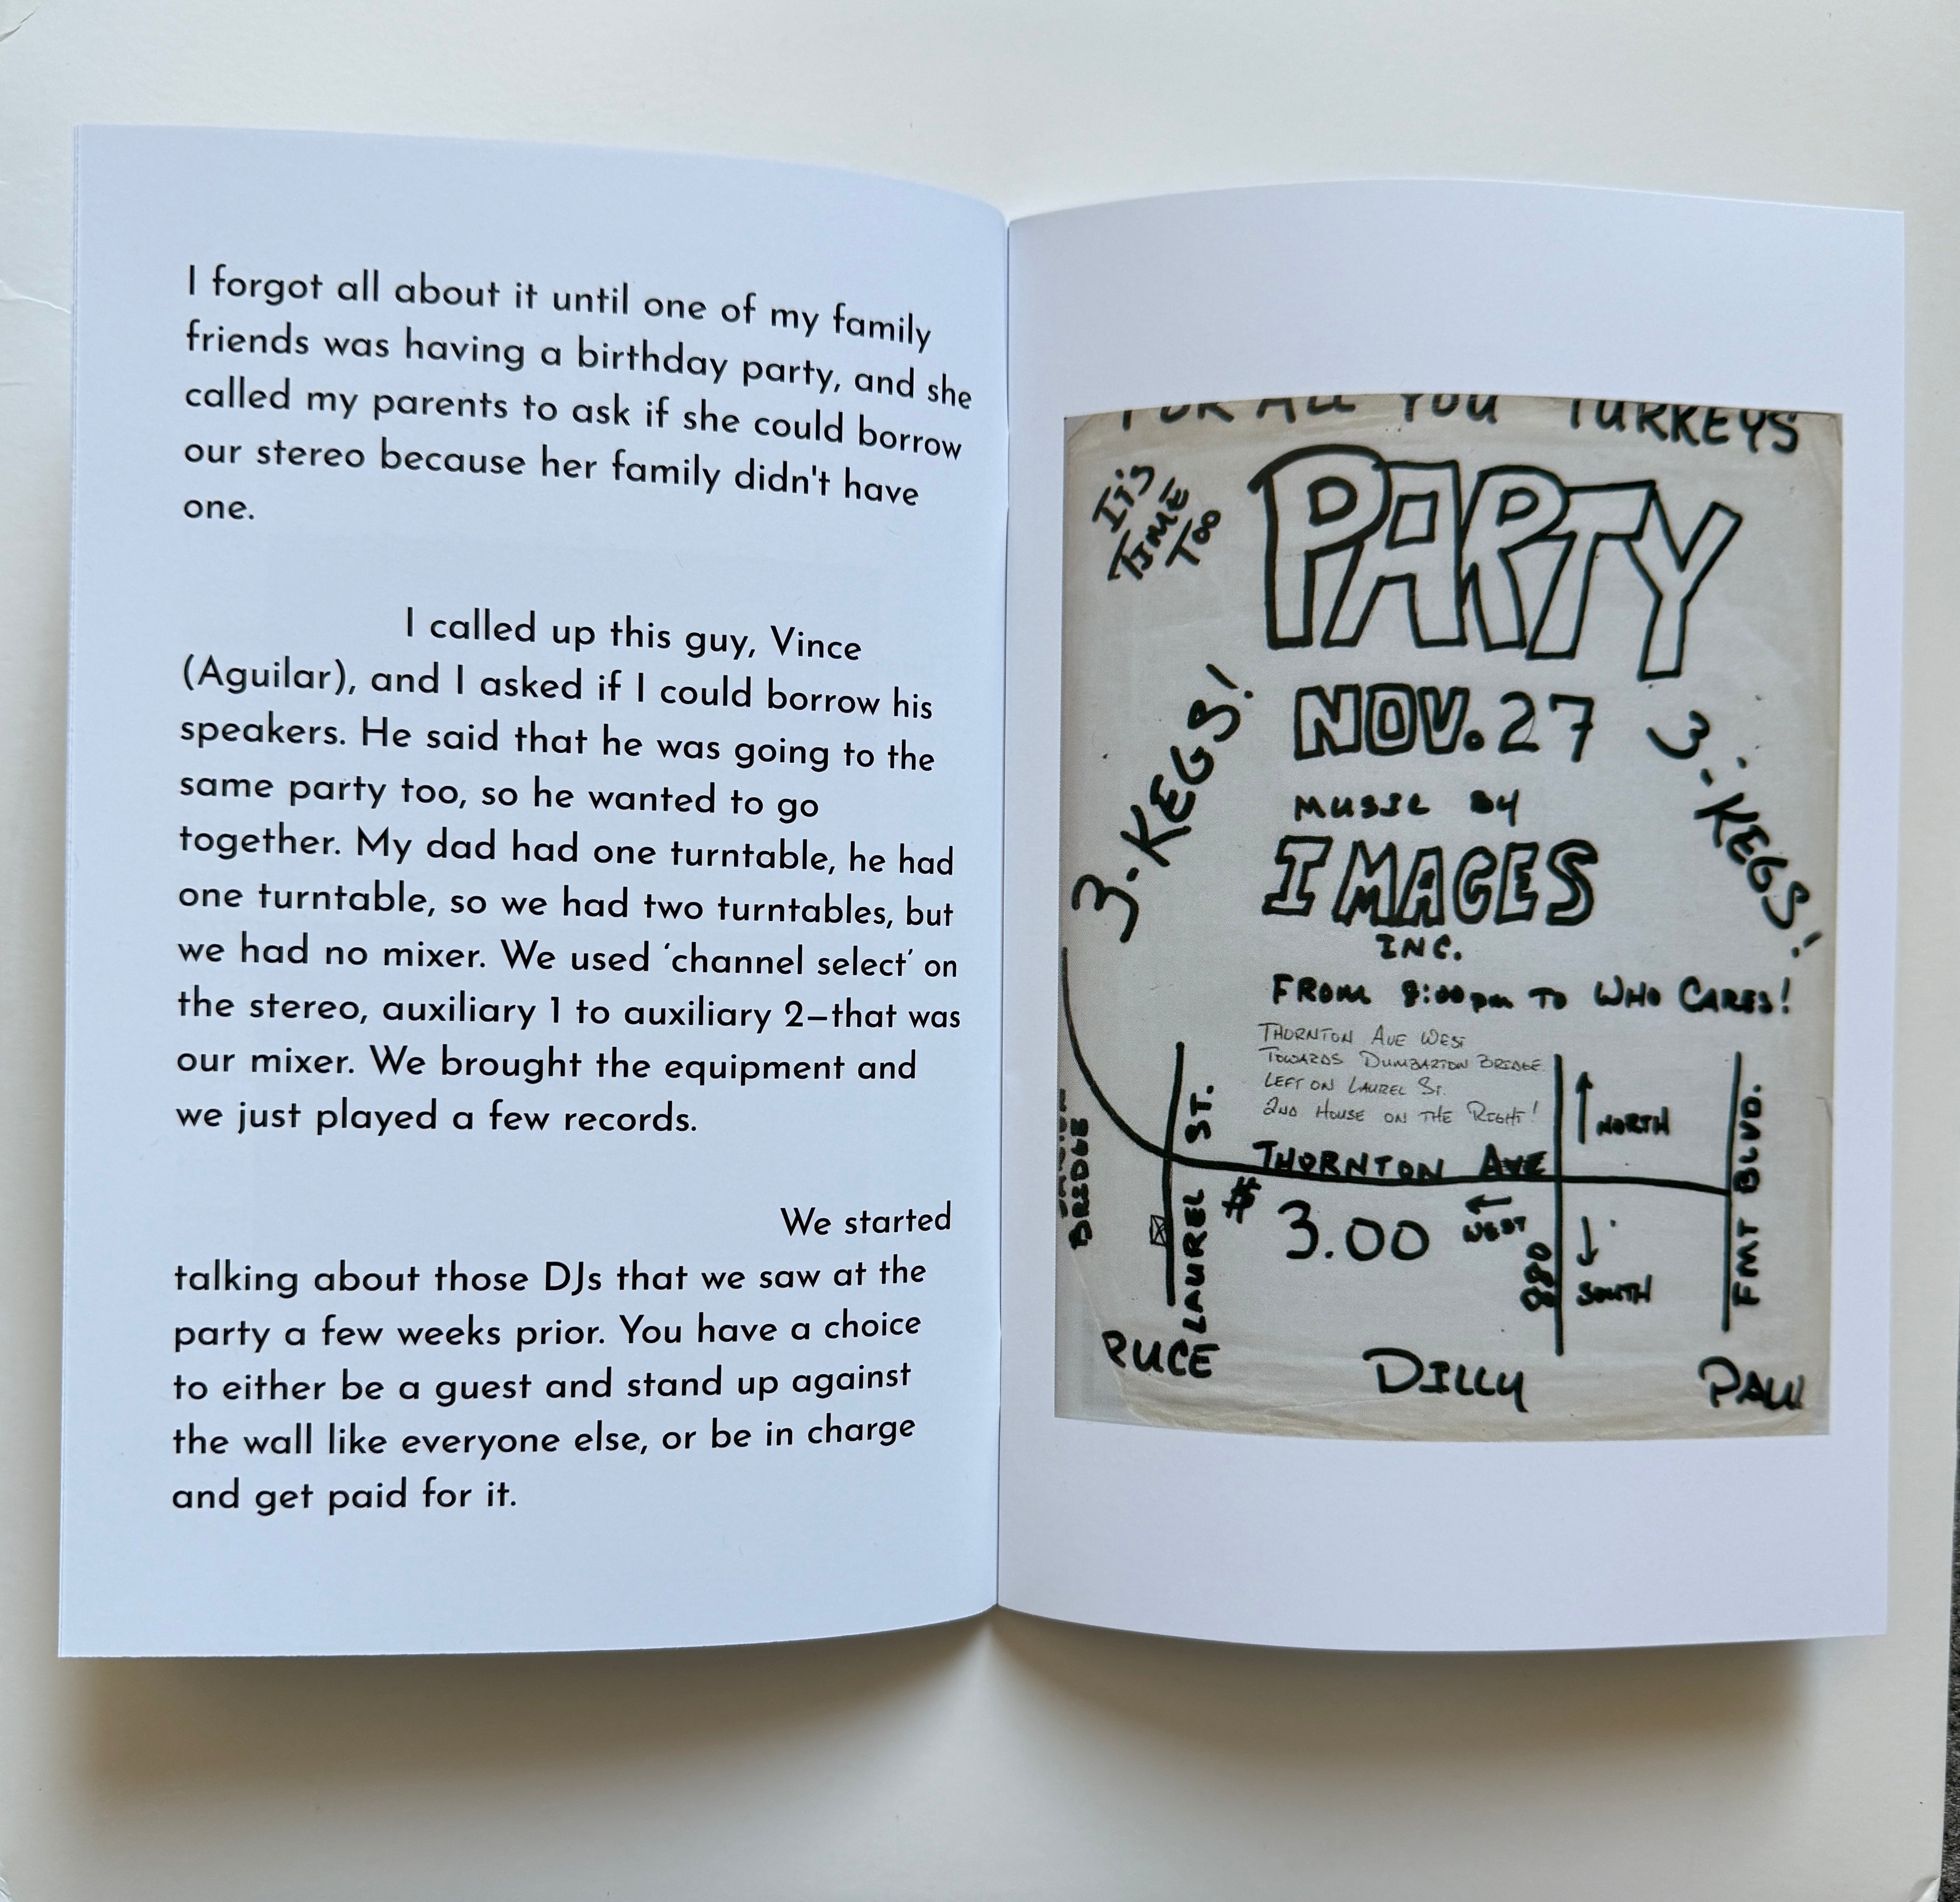 I forgot all about it until one of my family
friends was having a birthday party, and she
called my parents to ask if she could borrow
our stereo because her family didn't have
one.
I called up this guy, Vince
(Aguilar), and I asked if I could borrow his
speakers. He said that he was going to the
same party too, so he wanted to go
together. My dad had one turntable, he had
one turntable, so we had two turntables, but
we had no mixer. We used ‘channel select’ on
the stereo, auxiliary 1 to auxiliary 2–that was
our mixer. We brought the equipment and
we just played a few records.
We started
talking about those DJs that we saw at the
party a few weeks prior. You have a choice
to either be a guest and stand up against
the wall like everyone else, or be in charge
and get paid for it.
FOR ALL YOU TURKEYS
ITS
TIME
TOO
PARTY
NOV. 27
3-KEGS!
3-KEGS!
MUSIC BY
IMAGES
INC.
FROM 8:00pm TO WHO CARES!
THORNTON AVE WEST
TOWARDS DUMBARTON BRIDGE
LEFT ON LAUREL ST.
2ND HOUSE ON THE RIGHT!
BRIDGE
LAUREL ST.
THORNTON AVE
$3.00
WEST
880
NORTH
SOUTH
FMT BLVD.
DILLY
PAUL